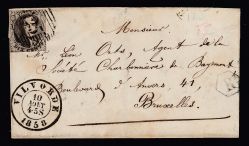 Monsieur
Mr. Léon Orts, Agent de la
Société Charbonnière de Bayemont
Boulevard d'Anvers, 41,
Bruxelles.
VILVORDE
10
4-5S
1858